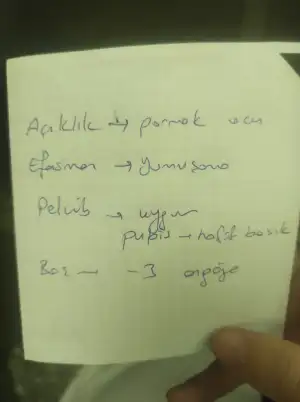 Açıklık → parmak ucu
Efasman → yumuşama
Pelvis → uygun
pubis → hafif basık
Baş → -3